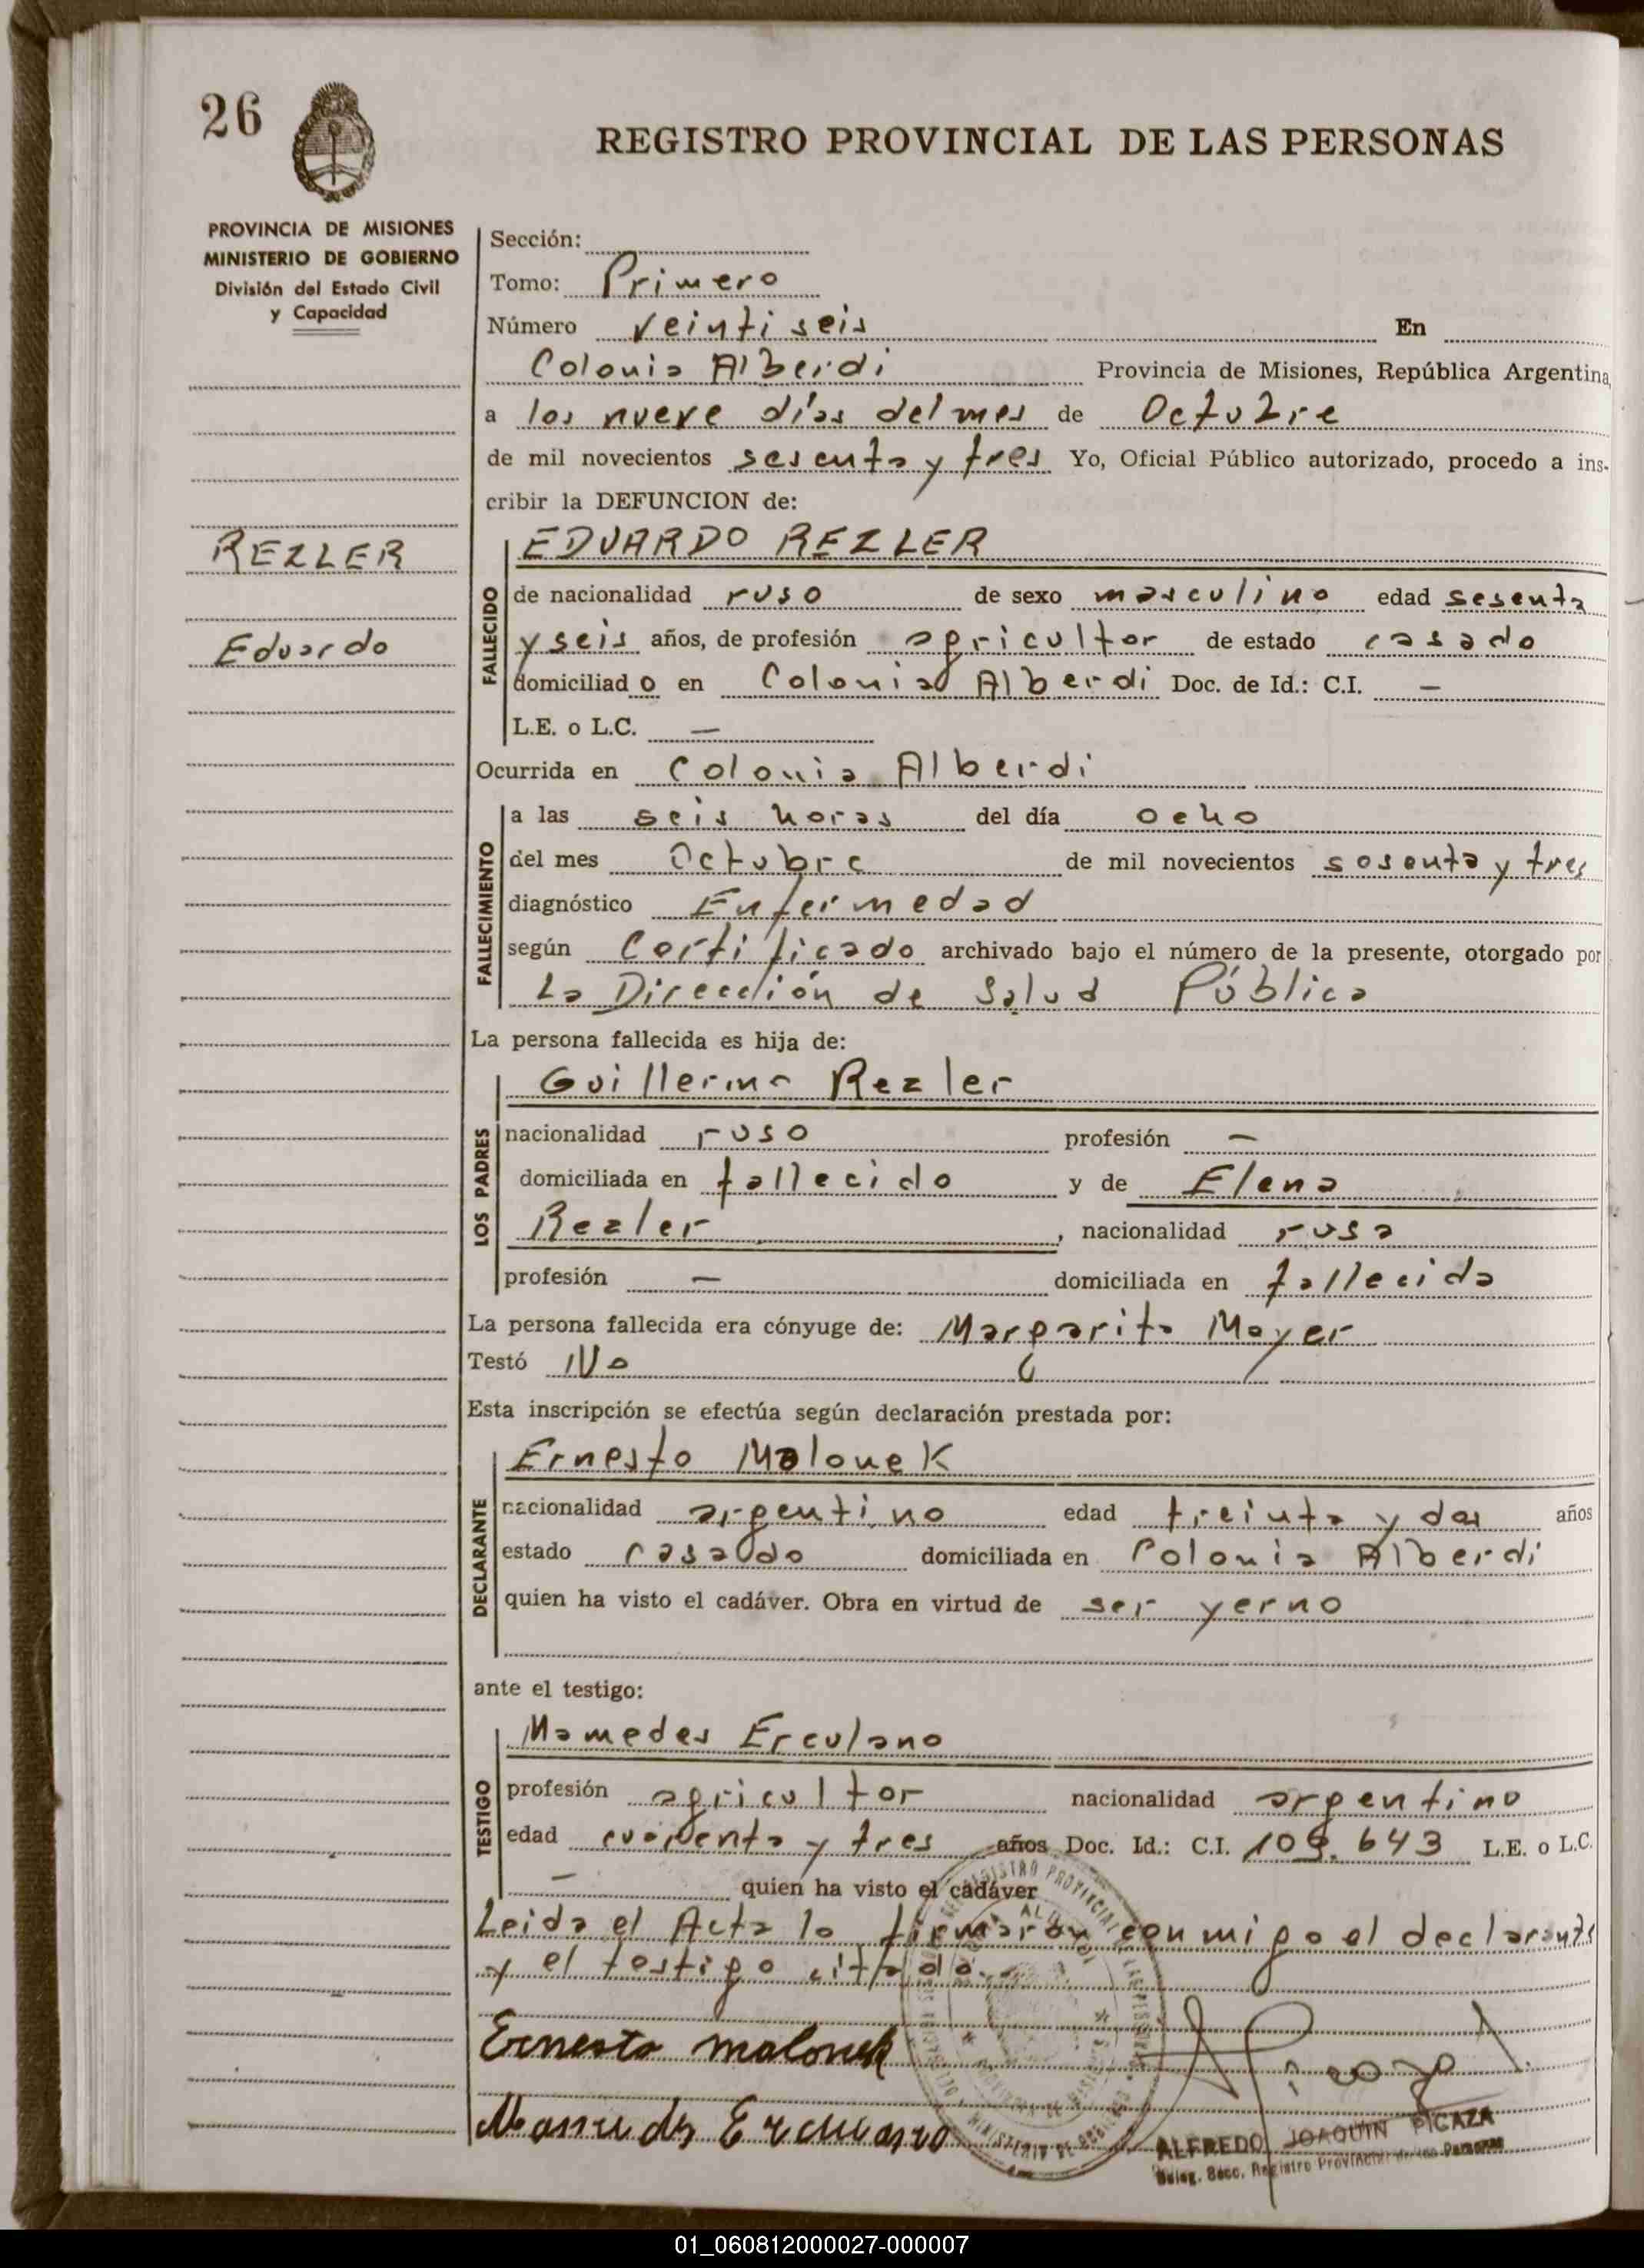 26
REGISTRO PROVINCIAL DE LAS PERSONAS
PROVINCIA DE MISIONES
MINISTERIO DE GOBIERNO
División del Estado Civil
y Capacidad
REZLER
Eduardo
Sección:
Tomo: Primero
Número veinti seis En
Colonia Alberdi Provincia de Misiones, República Argentina,
a los nueve días del mes de Octubre
de mil novecientos sesenta y tres Yo, Oficial Público autorizado, procedo a ins-
cribir la DEFUNCION de:
FALLECIDO
EDUARDO REZLER
de nacionalidad ruso de sexo masculino edad sesenta
y seis años, de profesión agricultor de estado casado
domiciliado en Colonia Alberdi Doc. de Id.: C.I. —
L.E. o L.C. —
Ocurrida en Colonia Alberdi
FALLECIMIENTO
a las seis horas del día ocho
del mes Octubre de mil novecientos sesenta y tres
diagnóstico Enfermedad
según Certificado archivado bajo el número de la presente, otorgado por
La Dirección de Salud Pública
La persona fallecida es hija de:
LOS PADRES
Guillermo Rezler
nacionalidad ruso profesión —
domiciliada en fallecido y de Elena
Rezler, nacionalidad rusa
profesión — domiciliada en fallecida
La persona fallecida era cónyuge de: Margarita Mayer
Testó No
Esta inscripción se efectúa según declaración prestada por:
DECLARANTE
Ernesto Malonek
nacionalidad argentino edad treinta y dos años
estado casado domiciliada en Colonia Alberdi
quien ha visto el cadáver. Obra en virtud de ser yerno
ante el testigo:
TESTIGO
Mamedes Erculano
profesión agricultor nacionalidad argentino
edad cuarenta y tres años Doc. Id.: C.I. 109.643 L.E. o L.C.
— quien ha visto el cadáver
Leida el Acta la firmaron conmigo el declarante
y el testigo citado.
Ernesto malonek
Mamedes Erculano
ALFREDO JOAQUIN PICAZA
Deleg. Secc. Registro Provincial de las Personas
01_060812000027-000007